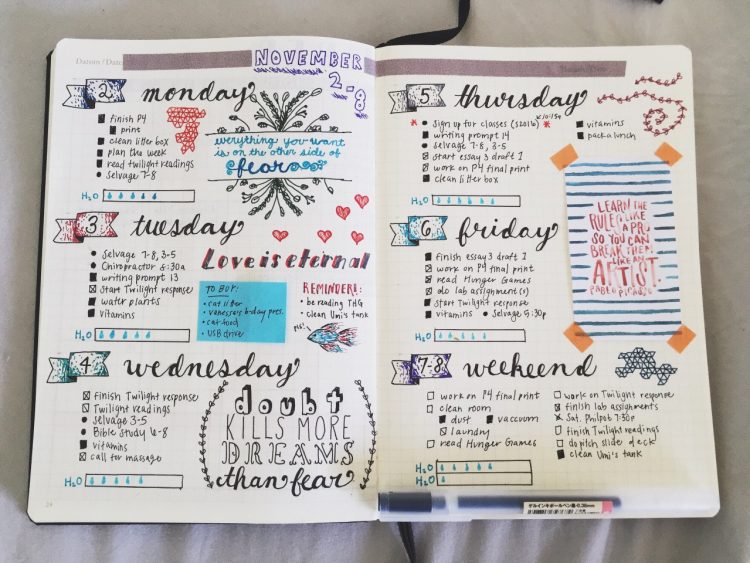 Datum/Date
NOVEMBER
2-8
2 monday
finish P4
print
clean litter box
plan the week
read twilight readings
Selvage 7-8
H2O
everything you want
is on the other side of
fear
3 tuesday
Selvage 7-8, 3-5
Chiropractor 8:30a
writing prompt 13
Start Twilight response
water plants
vitamins
H2O
Love is eternal
TO BUY:
cat litter
vanessa's b-day pres.
cat food
USB drive
REMINDER!:
be reading THG
clean Umi's tank
4 wednesday
finish Twilight response
Twilight readings
Selvage 3-5
Bible Study 6-8
vitamins
call for massage
H2O
doubt
KILLS MORE
DREAMS
than fear
24
5 thursday
sign up for classes (S2016)
writing prompt 14
Selvage 7-8, 3-5
start essay 3 draft 1
work on P4 final print
clean litter box
vitamins
pack lunch
H2O
LEARN THE
RULES LIKE
A PRO
SO YOU CAN
BREAK THEM
LIKE AN
ARTIST.
PABLO PICASSO
6 friday
finish essay 3 draft 1
work on P4 final print
read Hunger Games
do lab assignment(s)
start Twilight response
vitamins
Selvage 5:30p
H2O
7-8 weekend
work on P4 final print
clean room
dust
vaccum
laundry
read Hunger Games
work on Twilight response
finish lab assignments
Sat. Philpot 7:30p
finish Twilight readings
do pitch slide deck
clean Umi's tank
H2O
H2O
ゲルインキボールペン 0.38mm